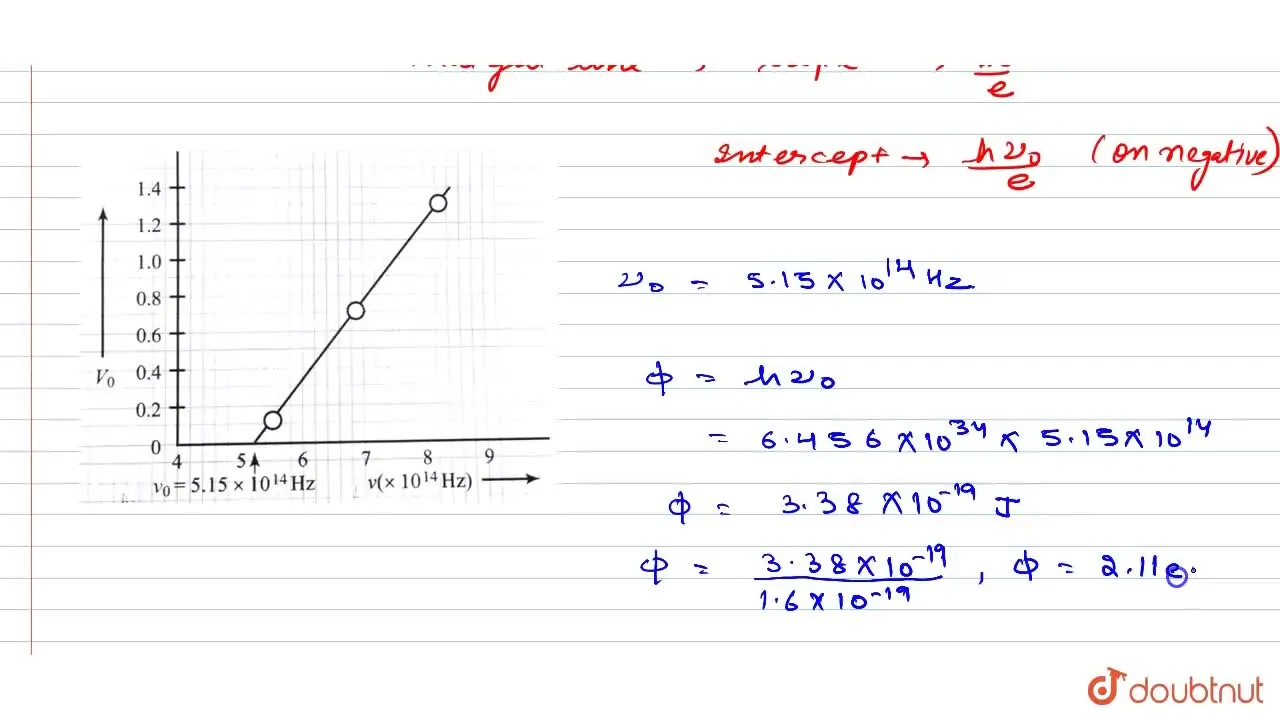 e
Intercept → hν₀/e (on negative)
1.4
1.2
1.0
0.8
0.6
0.4
0.2
0
V₀
4 5 6 7 8 9
ν₀ = 5.15 × 10¹⁴ Hz ν(× 10¹⁴ Hz)
ν₀ = 5.15 × 10¹⁴ Hz
ϕ = hν₀
= 6.456 × 10³⁴ × 5.15 × 10¹⁴
ϕ = 3.38 × 10⁻¹⁹ J
ϕ = 3.38 × 10⁻¹⁹ / 1.6 × 10⁻¹⁹ , ϕ = 2.11 e.
doubtnut